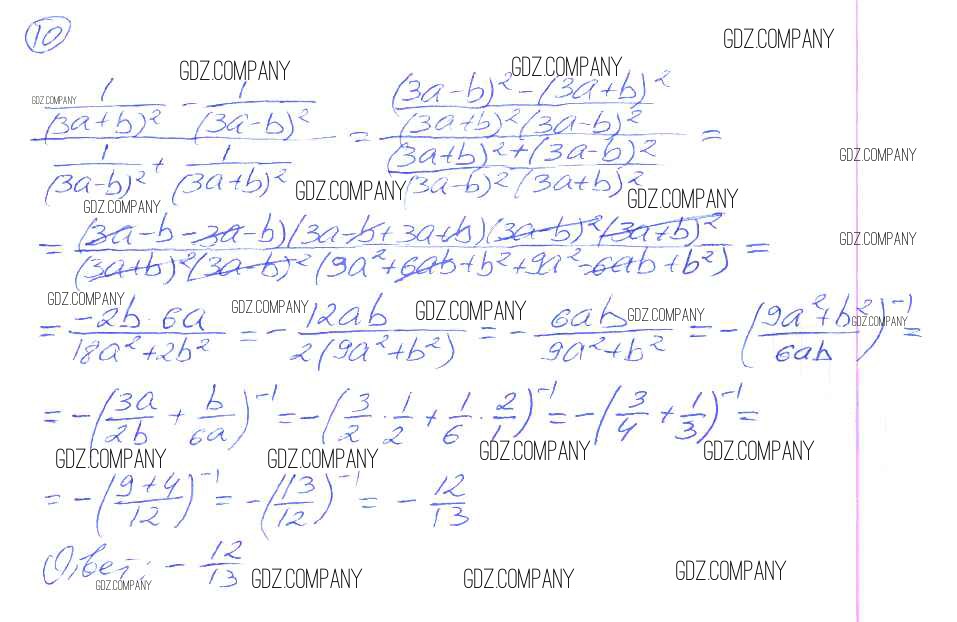 10
GDZ.COMPANY
GDZ.COMPANY GDZ.COMPANY
GDZ.COMPANY
(1/(3a+b)² - 1/(3a-b)²)/(1/(3a-b)² + 1/(3a+b)²) = (((3a-b)² - (3a+b)²)/((3a+b)²(3a-b)²))/(((3a+b)² + (3a-b)²)/((3a-b)²(3a+b)²)) =
GDZ.COMPANY
GDZ.COMPANY GDZ.COMPANY
GDZ.COMPANY
= ((3a-b-3a-b)(3a-b+3a+b)(3a-b)²(3a+b)²)/((3a+b)²(3a-b)²(9a²+6ab+b²+9a²-6ab+b²)) =
GDZ.COMPANY
GDZ.COMPANY GDZ.COMPANY GDZ.COMPANY GDZ.COMPANY GDZ.COMPANY
= (-2b·6a)/(18a²+2b²) = - 12ab/(2(9a²+b²)) = - 6ab/(9a²+b²) = -((9a²+b²)/6ab)⁻¹ =
= -(3a/2b + b/6a)⁻¹ = -(3/2 · 1/2 + 1/6 · 2/1)⁻¹ = -(3/4 + 1/3)⁻¹ =
GDZ.COMPANY GDZ.COMPANY GDZ.COMPANY GDZ.COMPANY
= -((9+4)/12)⁻¹ = -(13/12)⁻¹ = - 12/13
Ответ: - 12/13
GDZ.COMPANY GDZ.COMPANY GDZ.COMPANY GDZ.COMPANY